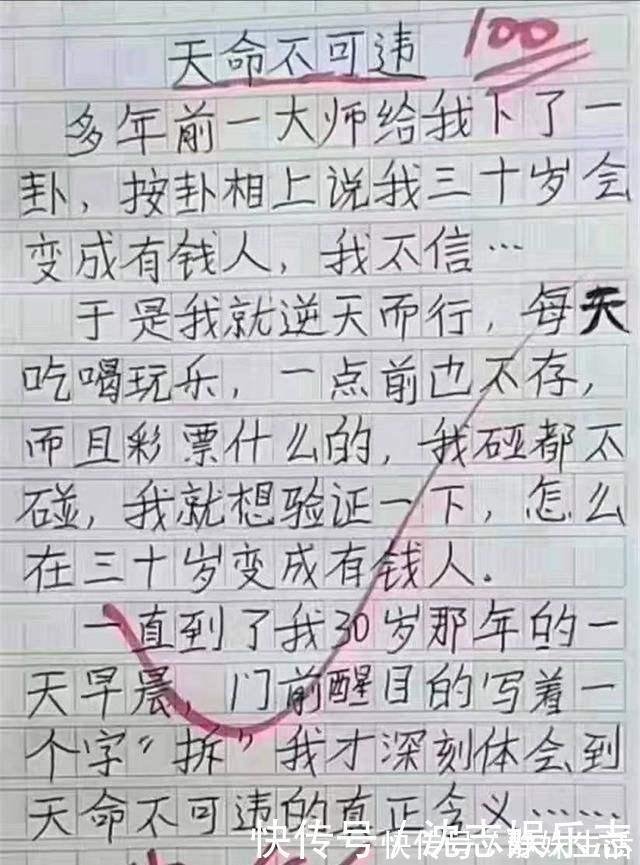 天命不可违 100
多年前一大师给我下了一
卦，按卦相上说我三十岁会
变成有钱人，我不信…
于是我就逆天而行，每天
吃喝玩乐，一点前也不存，
而且彩票什么的，我碰都不
碰，我就想验证一下，怎么
在三十岁变成有钱人.
一直到了我30岁那年的一
天早晨，门前醒目的写着一
个字“拆”我才深刻体会到
天命不可违的真正含义……
快传号